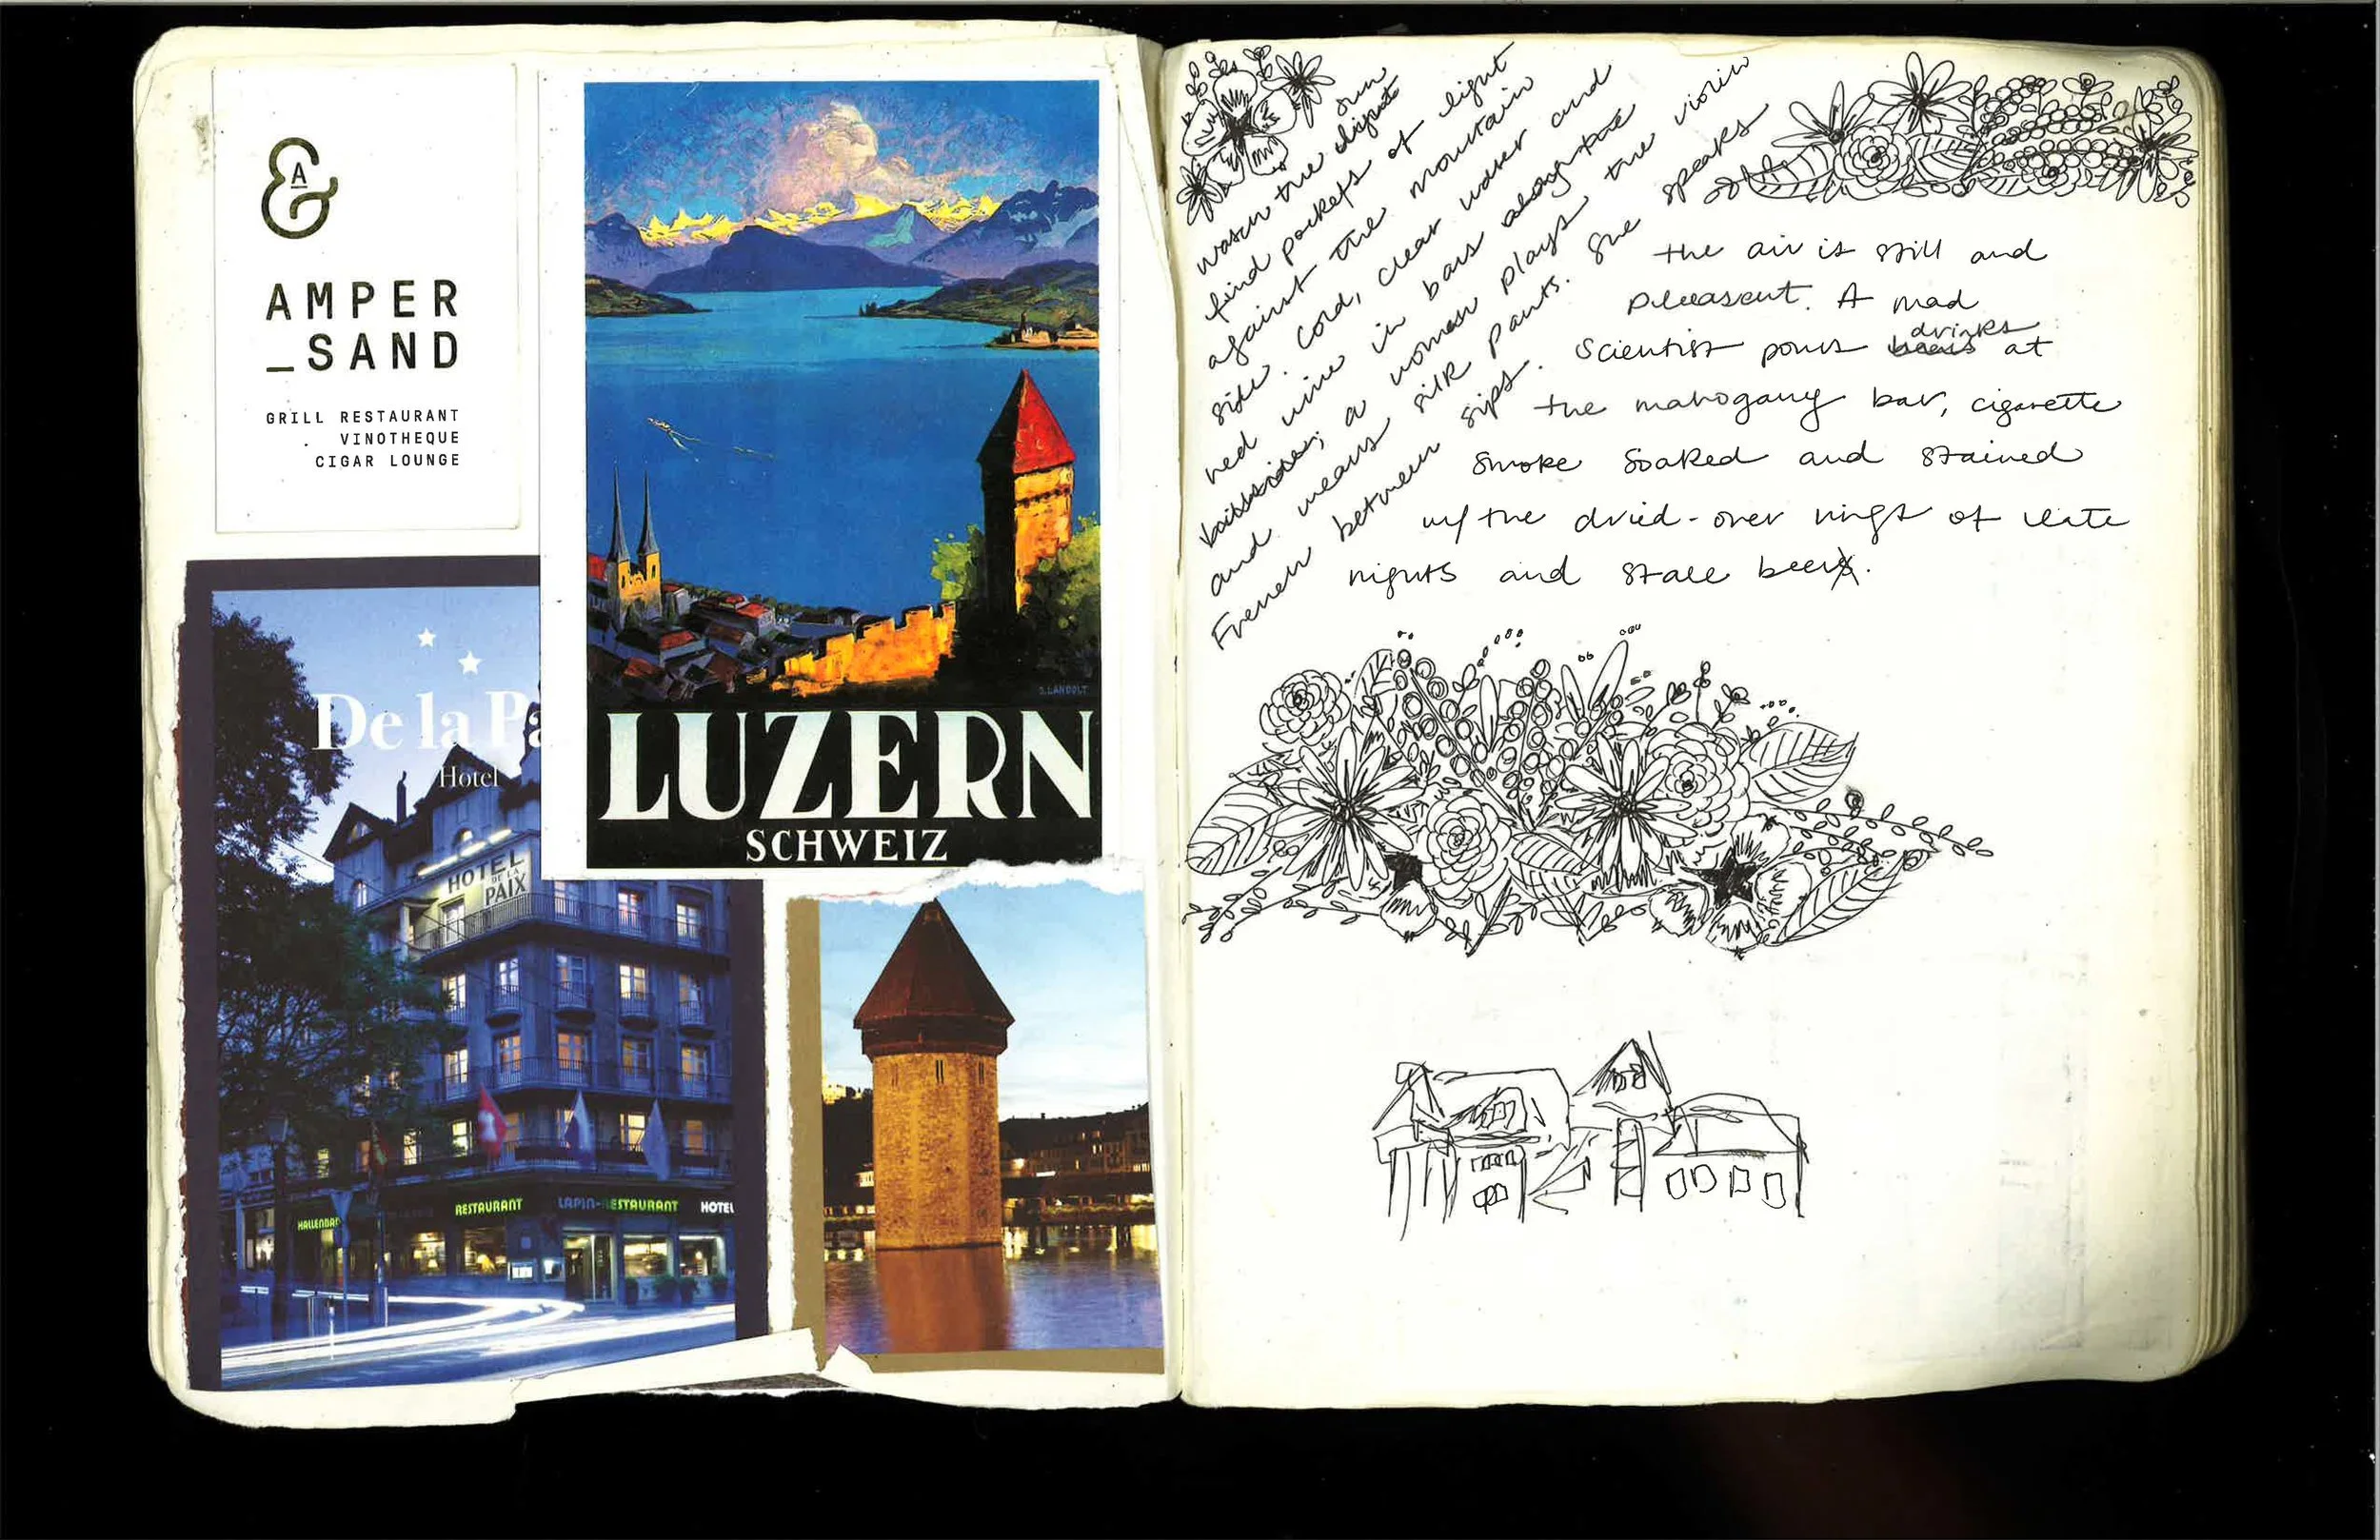 &
A
AMPER
_SAND
GRILL RESTAURANT
VINOTHEQUE
CIGAR LOUNGE
S.LANDOLT
LUZERN
SCHWEIZ
De la Pa
Hotel
HOTEL
DE LA
PAIX
HALLENBAD
RESTAURANT
LAPIN-RESTAURANT
HOTEL
sun
watch the
find pockets of light
against the mountain
side. Cold, clear water and
red wine in bars along the
a woman plays the violin
and wears silk pants. She speaks
French between sips.
the air is still and
pleasent. A mad
drinks
Scientist pours beers at
the mahogany bar, cigarette
smoke soaked and stained
w/ the dried-over rings of late
nights and stale beers.